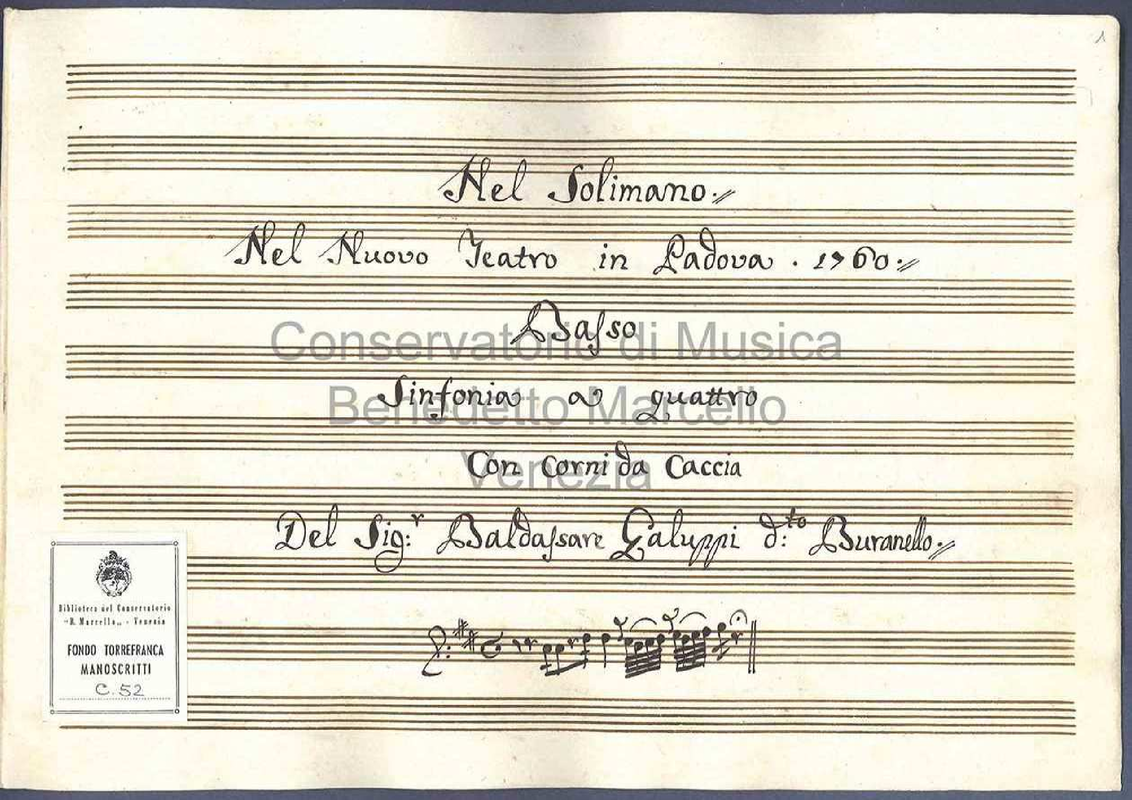 1
Nel Solimano.
Nel Nuovo Teatro in Padova . 1760.
Basso
Conservatorio di Musica
Sinfonia a quattro
Benedetto Marcello
Con Corni da Caccia
Venezia
Del Sig:r Baldassare Galuppi d:to Buranello.
Biblioteca del Conservatorio
"B. Marcello" - Venezia
FONDO TORREFRANCA
MANOSCRITTI
C. 52